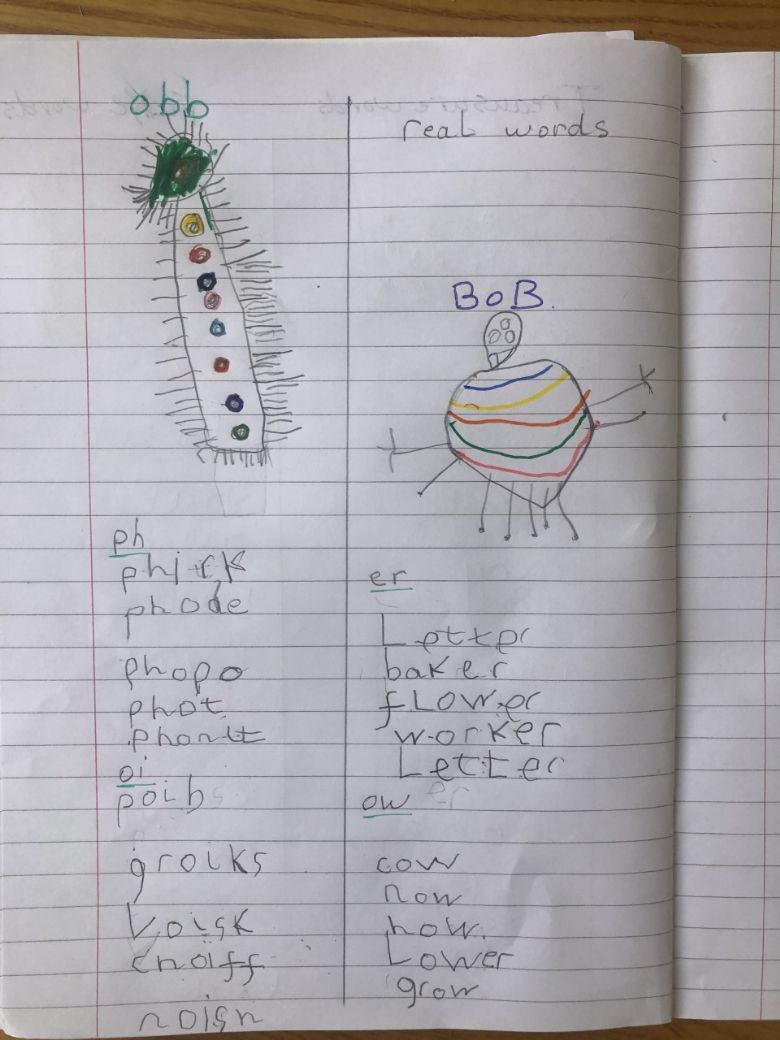 obb
ph
phode
phopo
phot
oi
poib
groiks
voisk
choiff
noign
real words
BoB.
er
Letter
baker
fLower
worker
Letter
ow
cow
now
how.
Lower
grow